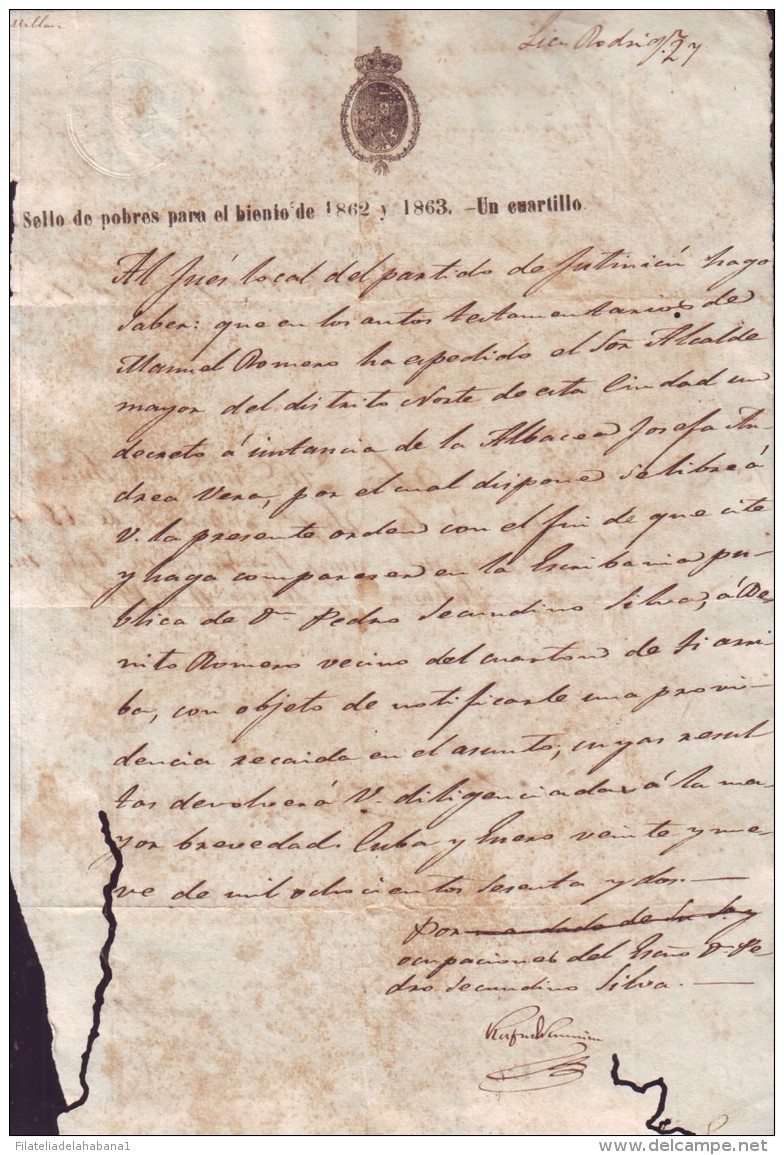 Millan
Licn Rodrigz 27
Sello de pobres para el bienio de 1862 y 1863. –Un cuartillo.
Al Jués local del partido de Jutinicú hago
saber: que en los autos testamentarios de
Manuel Romero ha espedido el Sor Alcalde
mayor del distrito Norte de esta Ciudad un
decreto á instancia de la Albacea Josefa An-
drea Vera, por el cual dispone se libre á
V. la presente orden con el fin de que cite
y haga compareser en la Escribania pu-
blica de Dn Pedro Secundino Silva, á Be-
nito Romero vecino del cuarton de Ti arri-
ba, con objeto de notificarle una provi-
dencia recaida en el asunto; cuyas resul
tas devolverá V. diligenciadas á la ma-
yor brevedad. Cuba y Enero veinte y nue-
ve de mil ochocientos sesenta y dos.—
Por mandado de Su Sa y
ocupaciones del Esno Dn Pe-
dro Secundino Silva.—
Filateliadelahabana1
www.delcampe.net